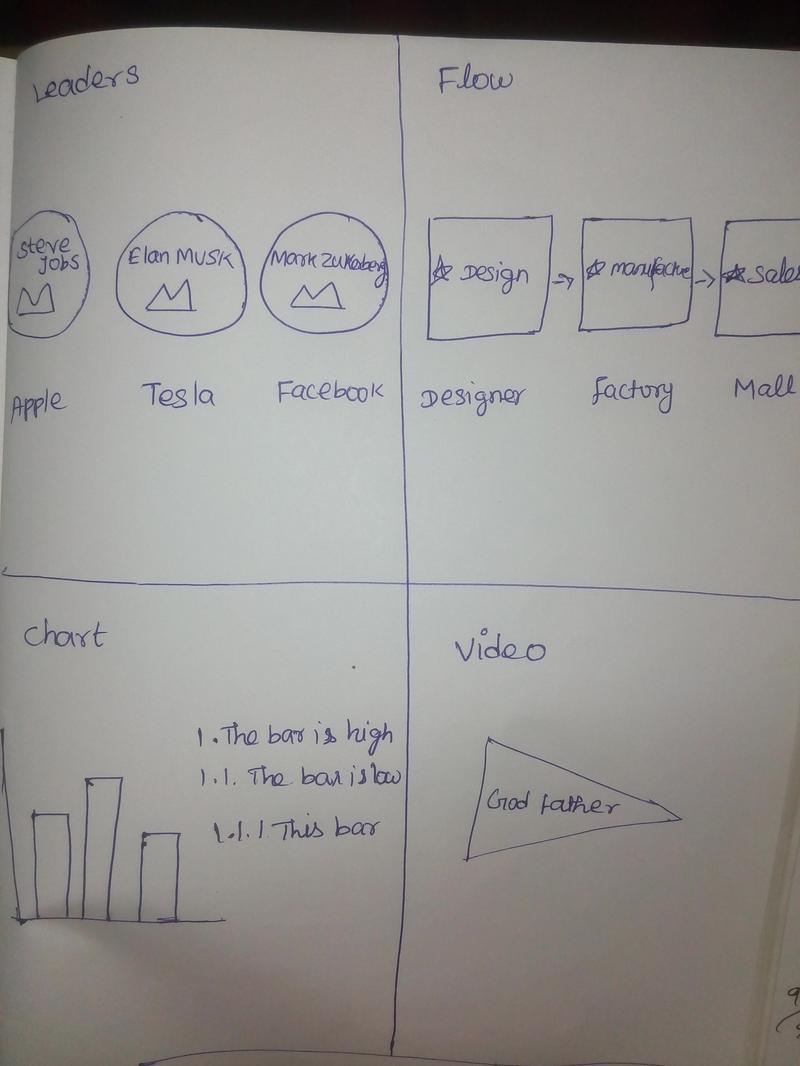 Leaders
Steve
Jobs
Elan MUSK
Mark Zukerberg
Apple
Tesla
Facebook
Flow
Design
manufactue
Sales
Designer
factory
Mall
Chart
1. The bar is high
1.1. The bar is low
1.1.1. This bar
Video
God father